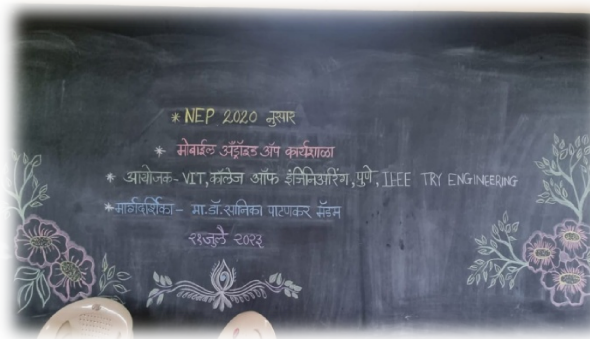 * NEP 2020 नुसार
* मोबाईल अँड्रॉइड अ‍ॅप कार्यशाळा
* आयोजक- VIT, कॉलेज ऑफ इंजिनिअरिंग, पुणे, IEEE TRY ENGINEERING
* मार्गदर्शिका - मा.डॉ.सानिका पाटणकर मॅडम
जुलै २०२३